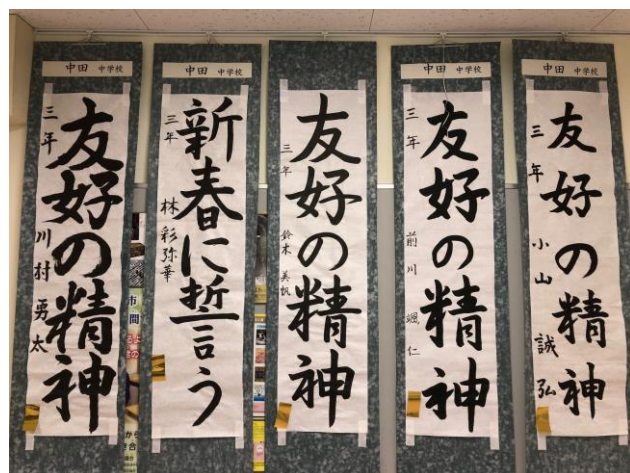 中田 中学校
友好の精神
三年 川村勇太
中田 中学校
新春に誓う
三年 林彩弥華
友好の精神
三年 鈴木美帆
中田 中学校
友好の精神
三年 前川颯仁
中田 中学校
友好の精神
三年 小山誠弘
市
間
から